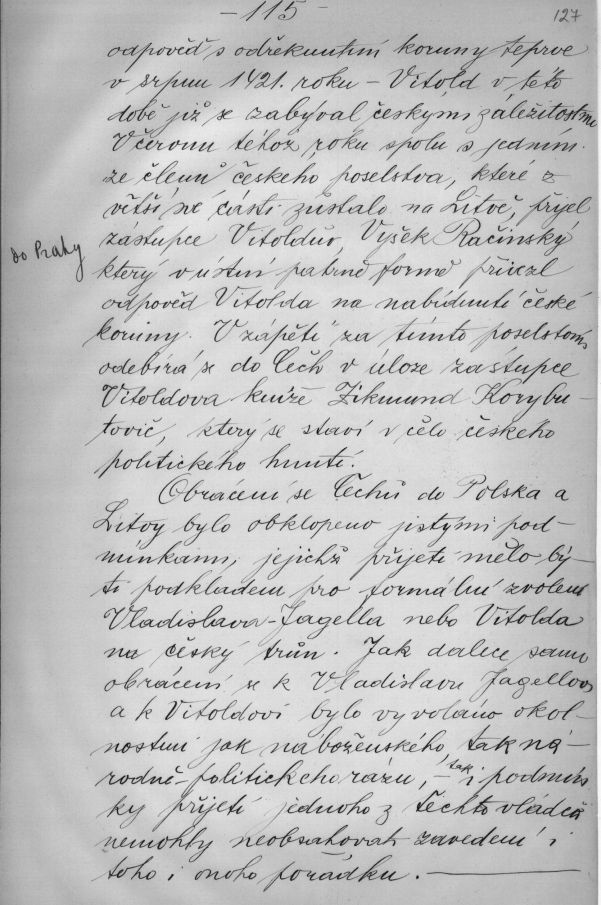 -115-
127
odpověď s odřeknutím koruny teprve
v srpnu 1421. roku - Vitold v této
době již se zabýval českými záležitostmi
V červnu téhož roku spolu s jedním
ze členů českeho poselstva, které z
větší své části zůstalo na Litvě, přijel
do Prahy
zástupce Vitoldův, Vyšek Račinský
který v ústní patrně formě přivezl
odpověd Vitolda na nabídnutí české
koruny. V zápětí za tímto poselstvím
odebírá se do Čech v úloze zástupce
Vitoldova kníže Zikmund Korybu-
tovič, který se staví v čelo českeho
politického hnutí.
Obrácení se Čechů do Polska a
Litvy bylo obklopeno jistými pod-
mínkami, jejichž přijetí mělo bý-
ti podkladem pro formální zvolení
Vladislava-Jagella nebo Vitolda
na český trůn. Jak dalece samo
obrácení se k Vladislavu Jagellovi
a k Vitoldovi bylo vyvoláno okol-
nostmi jak naboženského, tak ná-
rodně-politickeho rázu, - tak i podmín-
ky přijetí jednoho z těchto vládců
nemohly neobsahovati zavedení i
toho i onoho pořádku.